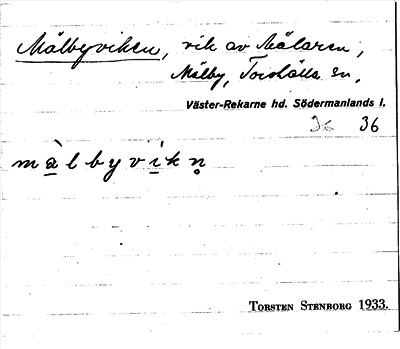 Mälbyviken, vik av Mälaren,
Mälby, Torshälla sn,
Väster-Rekarne hd. Södermanlands l.
36 36
màlbyvikn̥
TORSTEN STENBORG 1933.